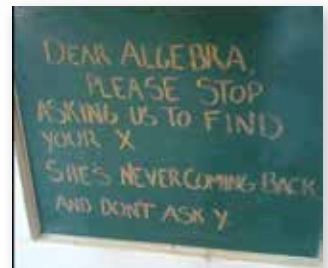 DEAR ALGEBRA,
PLEASE STOP
ASKING US TO FIND
YOUR X
SHE'S NEVER COMING BACK
AND DONT ASK Y.